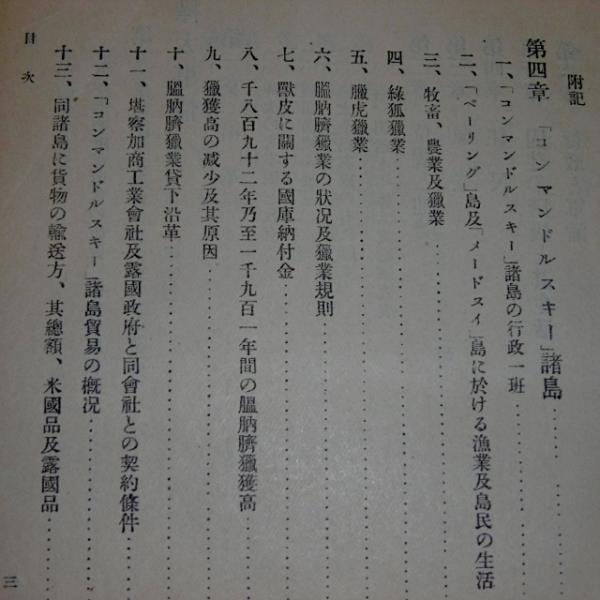 附記
第四章 「コンマンドルスキー」諸島
一、「コンマンドルスキー」諸島の行政一班
二、「ベーリング」島及「メードスイ」島に於ける漁業及島民の生活
三、牧畜、農業及獵業
四、綠狐獵業
五、臘虎獵業
六、膃肭臍獵業の狀况及獵業規則
七、獸皮に關する國庫納付金
八、千八百九十二年乃至一千九百一年間の膃肭臍獵獲高
九、獵獲高の減少及其原因
十、膃肭臍獵業貸下沿革
十一、堪察加商工業會社及露國政府と同會社との契約條件
十二、「コンマンドルスキー」諸島貿易の槪况
十三、同諸島に貨物の輸送方、其總額、米國品及露國品
目次
三